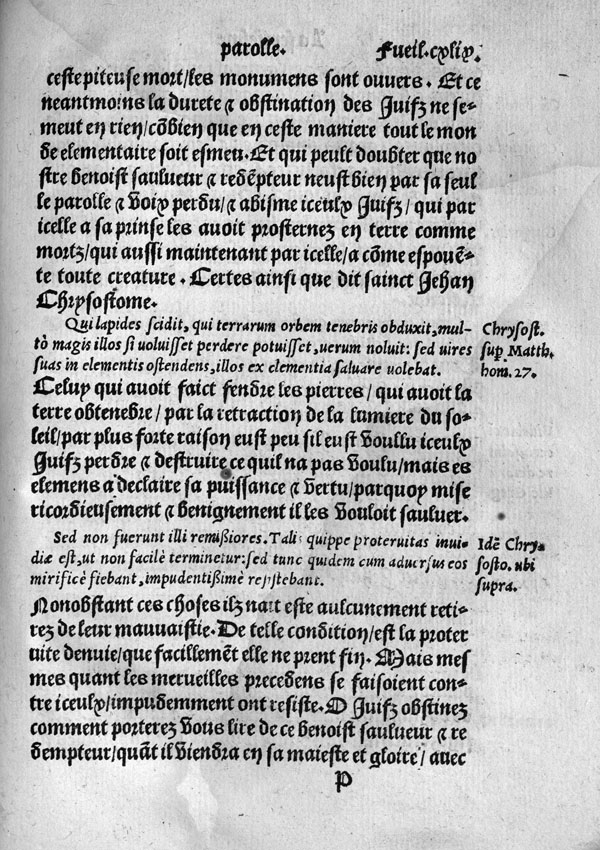 parolle. Fueil. cxlix.
ceste piteuse mort/les monumens sont ouvers. Et ce
neantmoins la durete & obstination des Juifz ne se-
meut en rien/cōbien que en ceste maniere tout le mon
de elementaire soit esmeu. Et qui peult doubter que no
stre benoist saulueur & redēpteur neust bien par sa seul
le parolle & voix perdu/& abisme iceulx Juifz/ qui par
icelle a sa prinse les auoit prosternez en terre comme
mortz/qui aussi maintenant par icelle/a cōme espouē-
te toute creature. Certes ainsi que dit sainct Jehan
Chrysostome.
Qui lapides scidit, qui terrarum orbem tenebris obduxit, mul-
tò magis illos si uoluisset perdere potuisset, uerum noluit: sed uires
suas in elementis ostendens, illos ex clementia saluare uolebat.
Chrysost.
sup Matth.
hom. 27.
Celuy qui auoit faict fendre les pierres/ qui auoit la
terre obtenebre/ par la retraction de la lumiere du so-
leil/par plus forte raison eust peu sil eust voullu iceulx
Juifz perdre & destruire ce quil na pas voulu/mais es
elemens a declaire sa puissance & vertu/parquoy mise
ricordieusement & benignement il les vouloit sauluer.
Sed non fuerunt illi remißiores. Talis quippe proteruitas inui-
diæ est, ut non facilè terminetur: sed tunc quidem cum aduersus eos
mirificè fiebant, impudentißimè resistebant.
Idē Chry-
sosto. ubi
supra.
Nonobstant ces choses ilz nont este aulcunement reti-
rez de leur mauuaistie. De telle condition/est la proter
uite denuie/que facillemēt elle ne prent fin. Mais mes
mes quant les merueilles precedens se faisoient con-
tre iceulx/impudemment ont resiste. O Juifz obstinez
comment porterez vous lire de ce benoist saulueur & re
dempteur/quāt il viendra en sa maieste et gloire/ auec
P